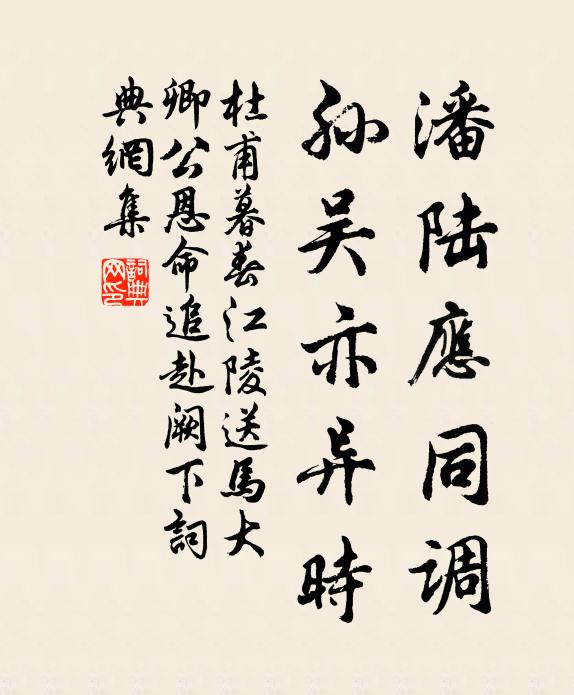 潘陆應同调
孙吴亦异時
杜甫暮春江陵送馬大
卿公恩命追赴阙下詞
典網集
詞典网印